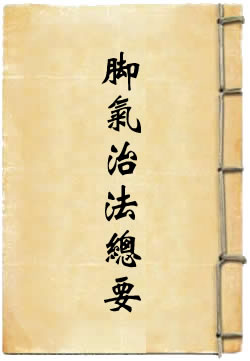 脚氣治法總要